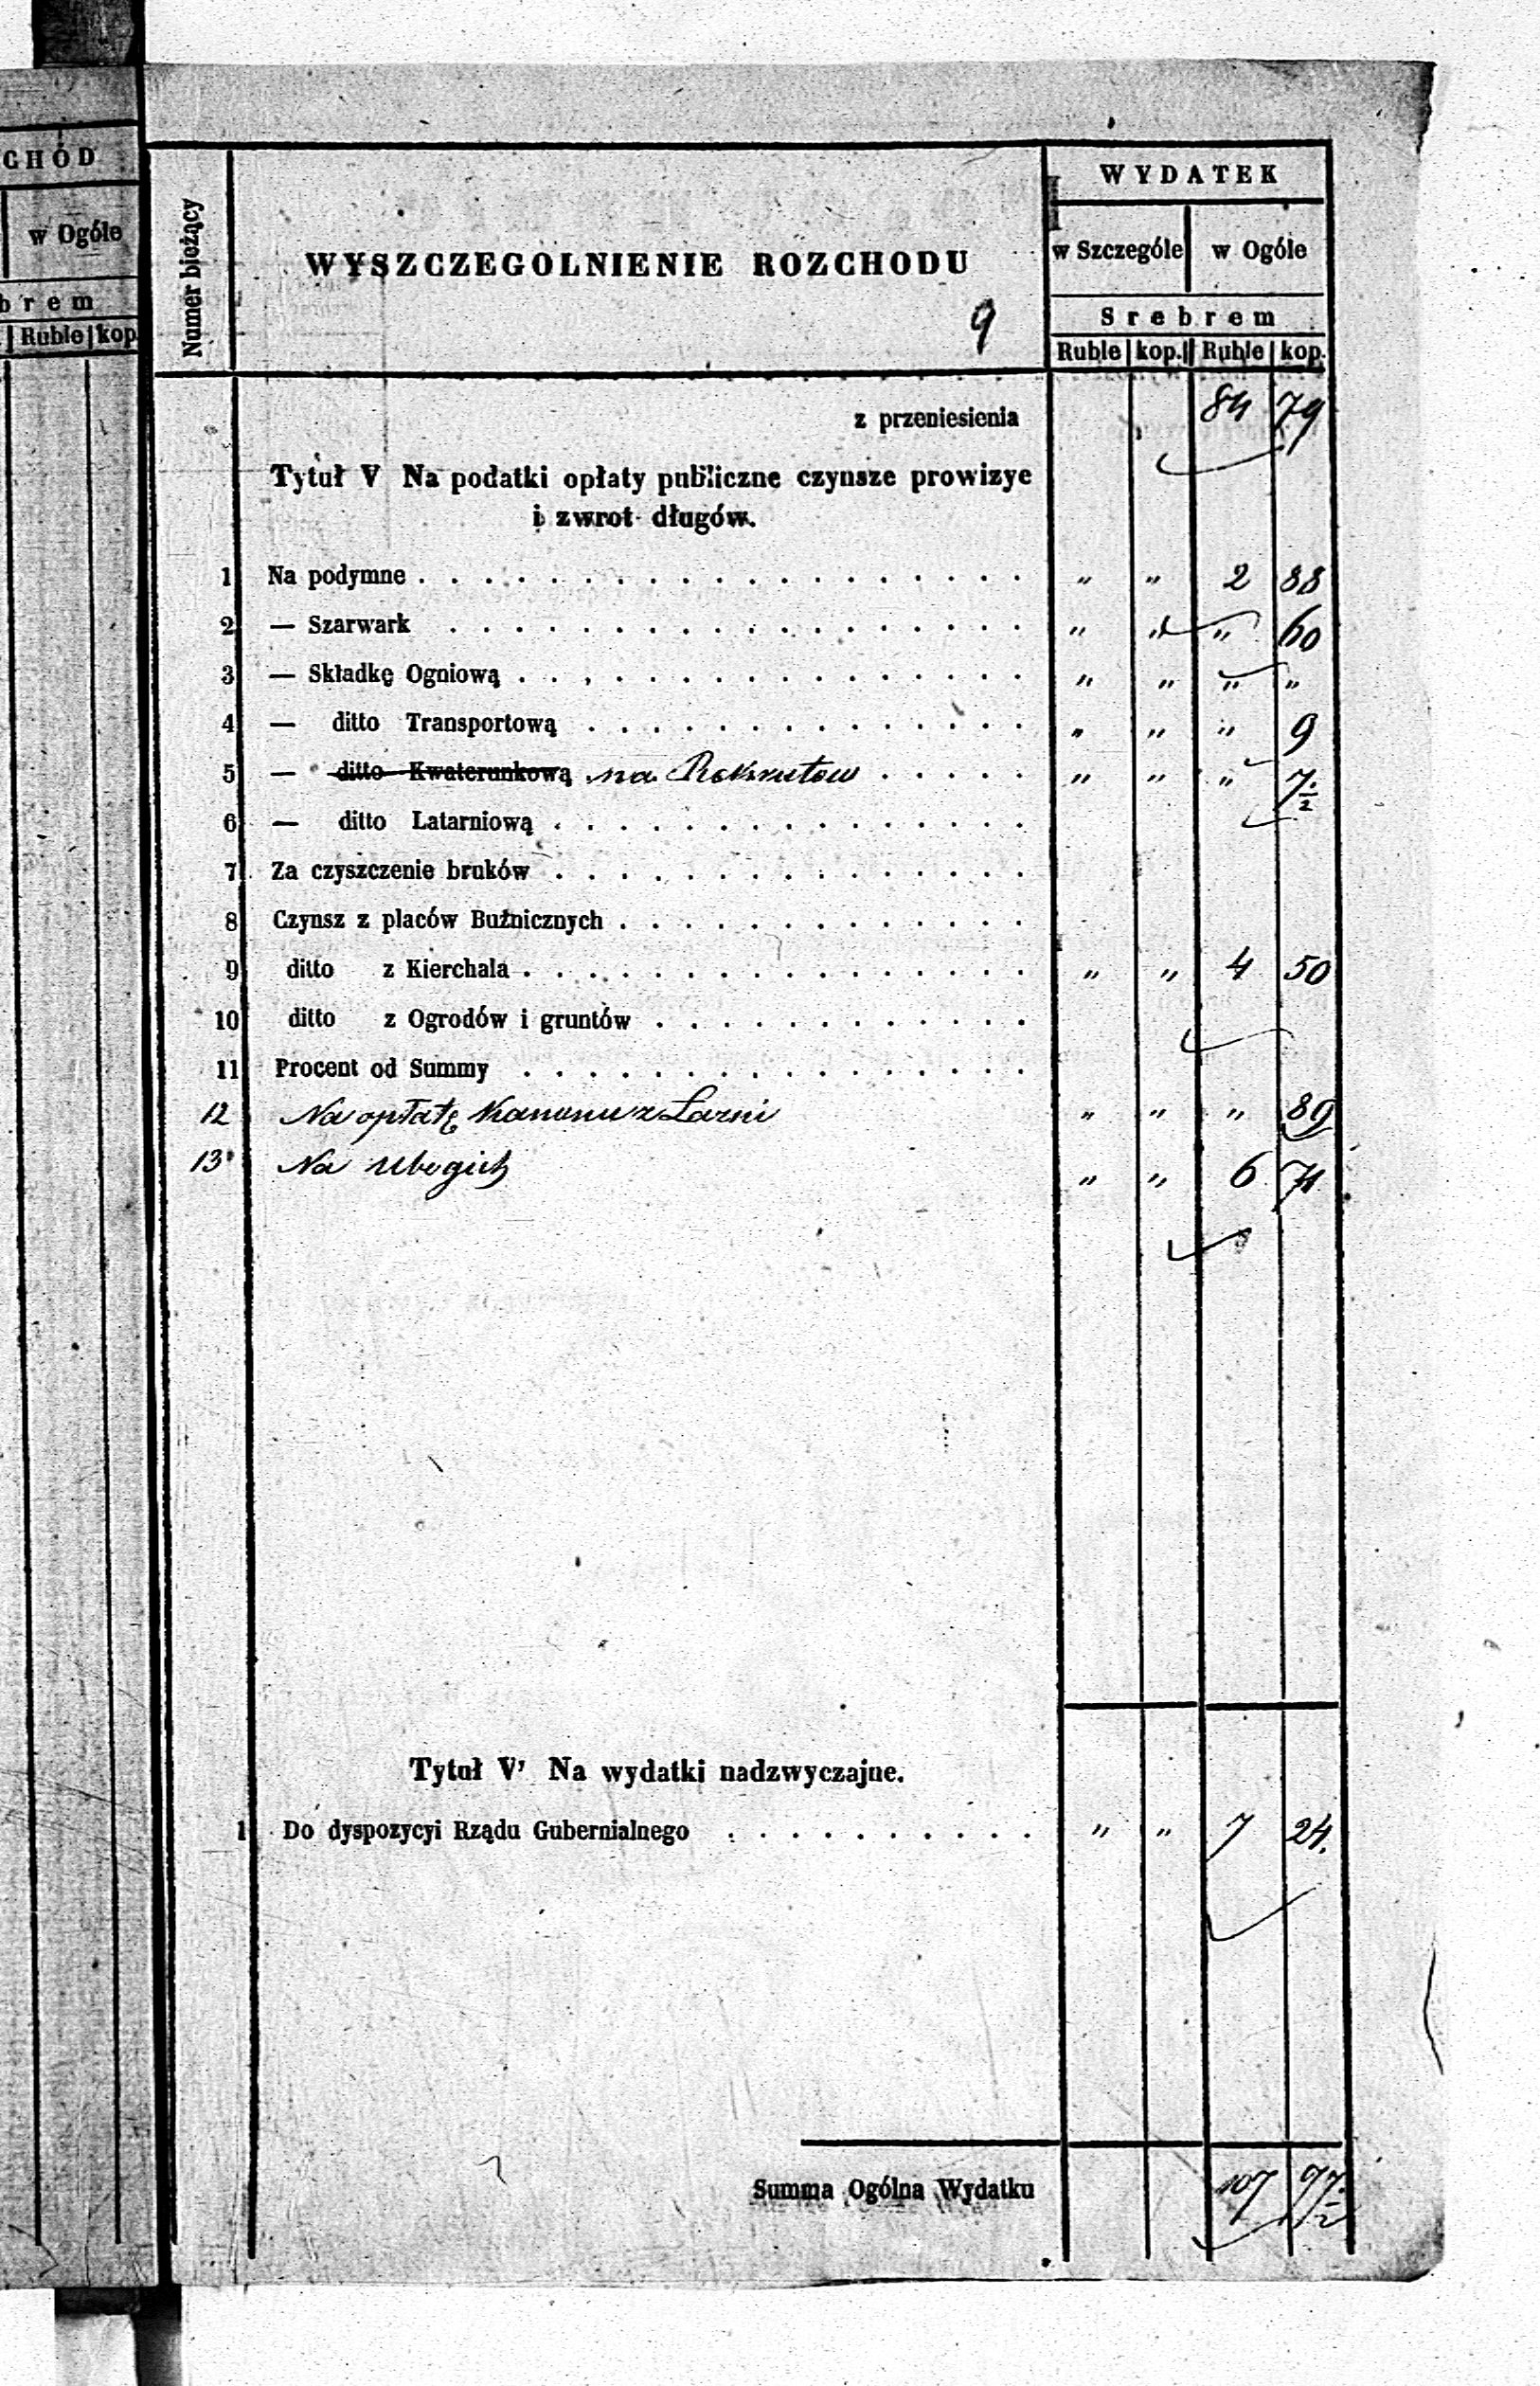 CHÓD
w Ogóle
brem
Ruble kop.
Numer bieżący
WYSZCZEGOLNIENIE ROZCHODU
9
WYDATEK
w Szczególe w Ogóle
Srebrem
Ruble kop. Ruble kop.
z przeniesienia 84 79
Tytuł V Na podatki opłaty publiczne czynsze prowizye
i zwrot długów.
1 Na podymne . . . . . . . . . . . . . . . . . . . „ „ 2 88
2 — Szarwark . . . . . . . . . . . . . . . . . . „ „ „ 60
3 — Składkę Ogniową . . . . . . . . . . . . . . . . „ „ „ „
4 — ditto Transportową . . . . . . . . . . . . . . „ „ „ 9
5 — ditto Kwaterunkową na Rekrutow . . . . . „ „ „ 7½
6 — ditto Latarniową . . . . . . . . . . . . . . .
7 Za czyszczenie bruków . . . . . . . . . . . . . . .
8 Czynsz z placów Buźnicznych . . . . . . . . . . . . .
9 ditto z Kierchala . . . . . . . . . . . . . . . . „ „ 4 50
10 ditto z Ogrodów i gruntów . . . . . . . . . . . .
11 Procent od Summy . . . . . . . . . . . . . . . .
12 Na opłatę Kanonu z Łazni „ „ „ 89
13 Na Ubogich „ „ 6 71
Tytuł V' Na wydatki nadzwyczajne.
1 Do dyspozycyi Rządu Gubernialnego . . . . . . . . . . „ „ 7 24.
Summa Ogólna Wydatku 107 77½